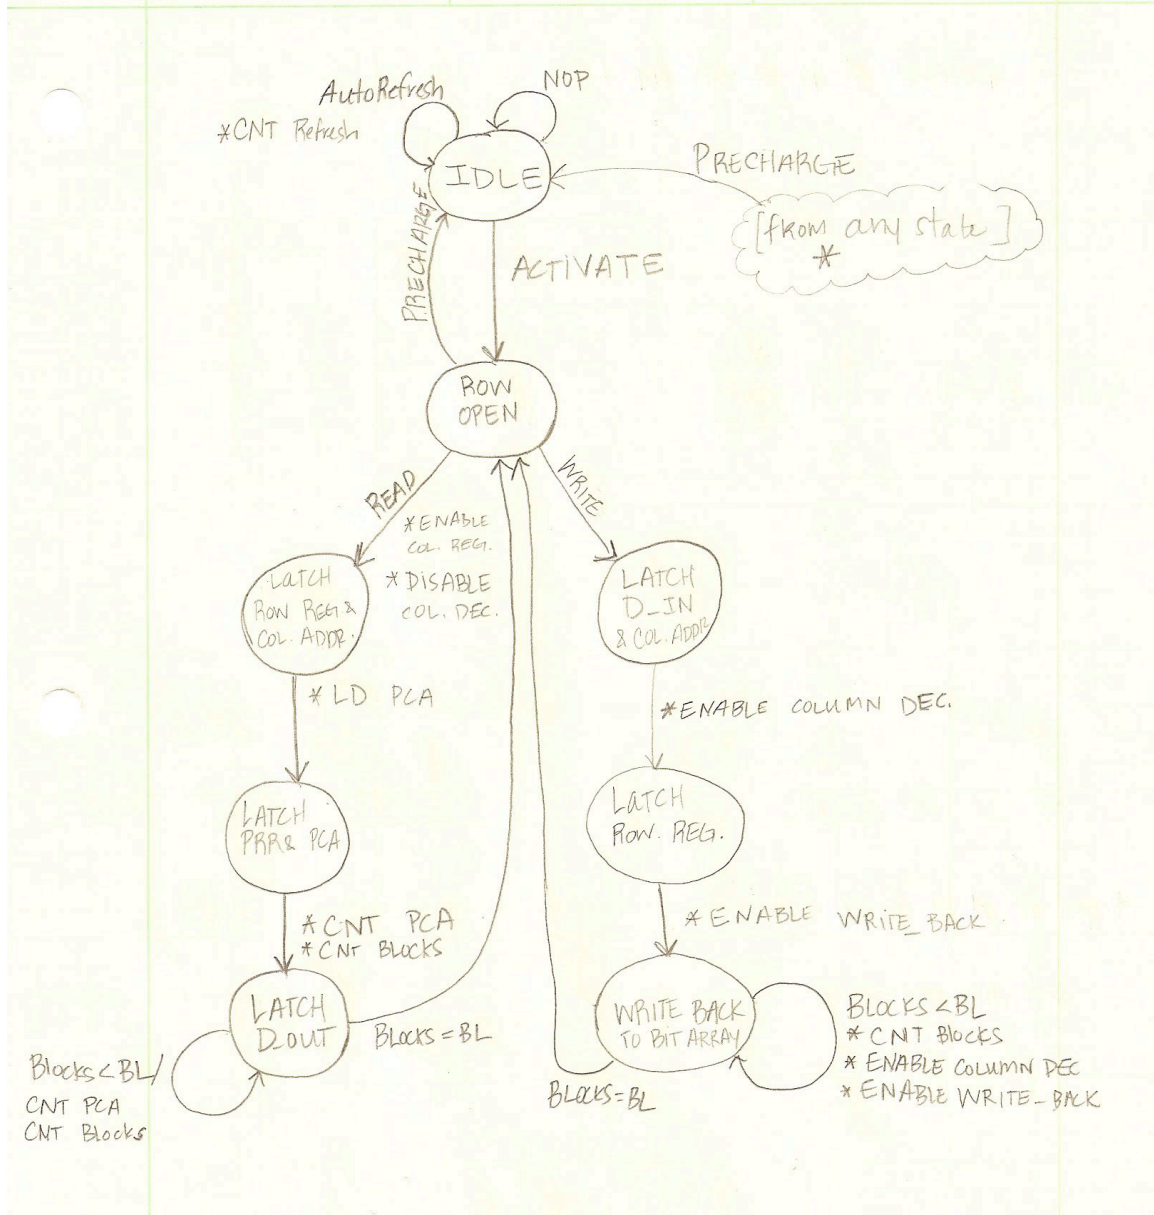 NOP
AutoRefresh
*CNT Refresh
IDLE
PRECHARGE
[from any state]
*
PRECHARGE
ACTIVATE
ROW
OPEN
READ
WRITE
*ENABLE
COL. REG.
*DISABLE
COL. DEC.
LATCH
ROW REG &
COL. ADDR.
LATCH
D_IN
& COL. ADDR
* LD PCA
*ENABLE COLUMN DEC.
LATCH
PRR & PCA
LATCH
ROW. REG.
*CNT PCA
*CNT BLOCKS
*ENABLE WRITE_BACK
LATCH
D_OUT
BLOCKS = BL
WRITE BACK
TO BIT ARRAY
BLOCKS<BL
* CNT BLOCKS
* ENABLE COLUMN DEC
* ENABLE WRITE_BACK
BLOCKS=BL
Blocks<BL/
CNT PCA
CNT Blocks